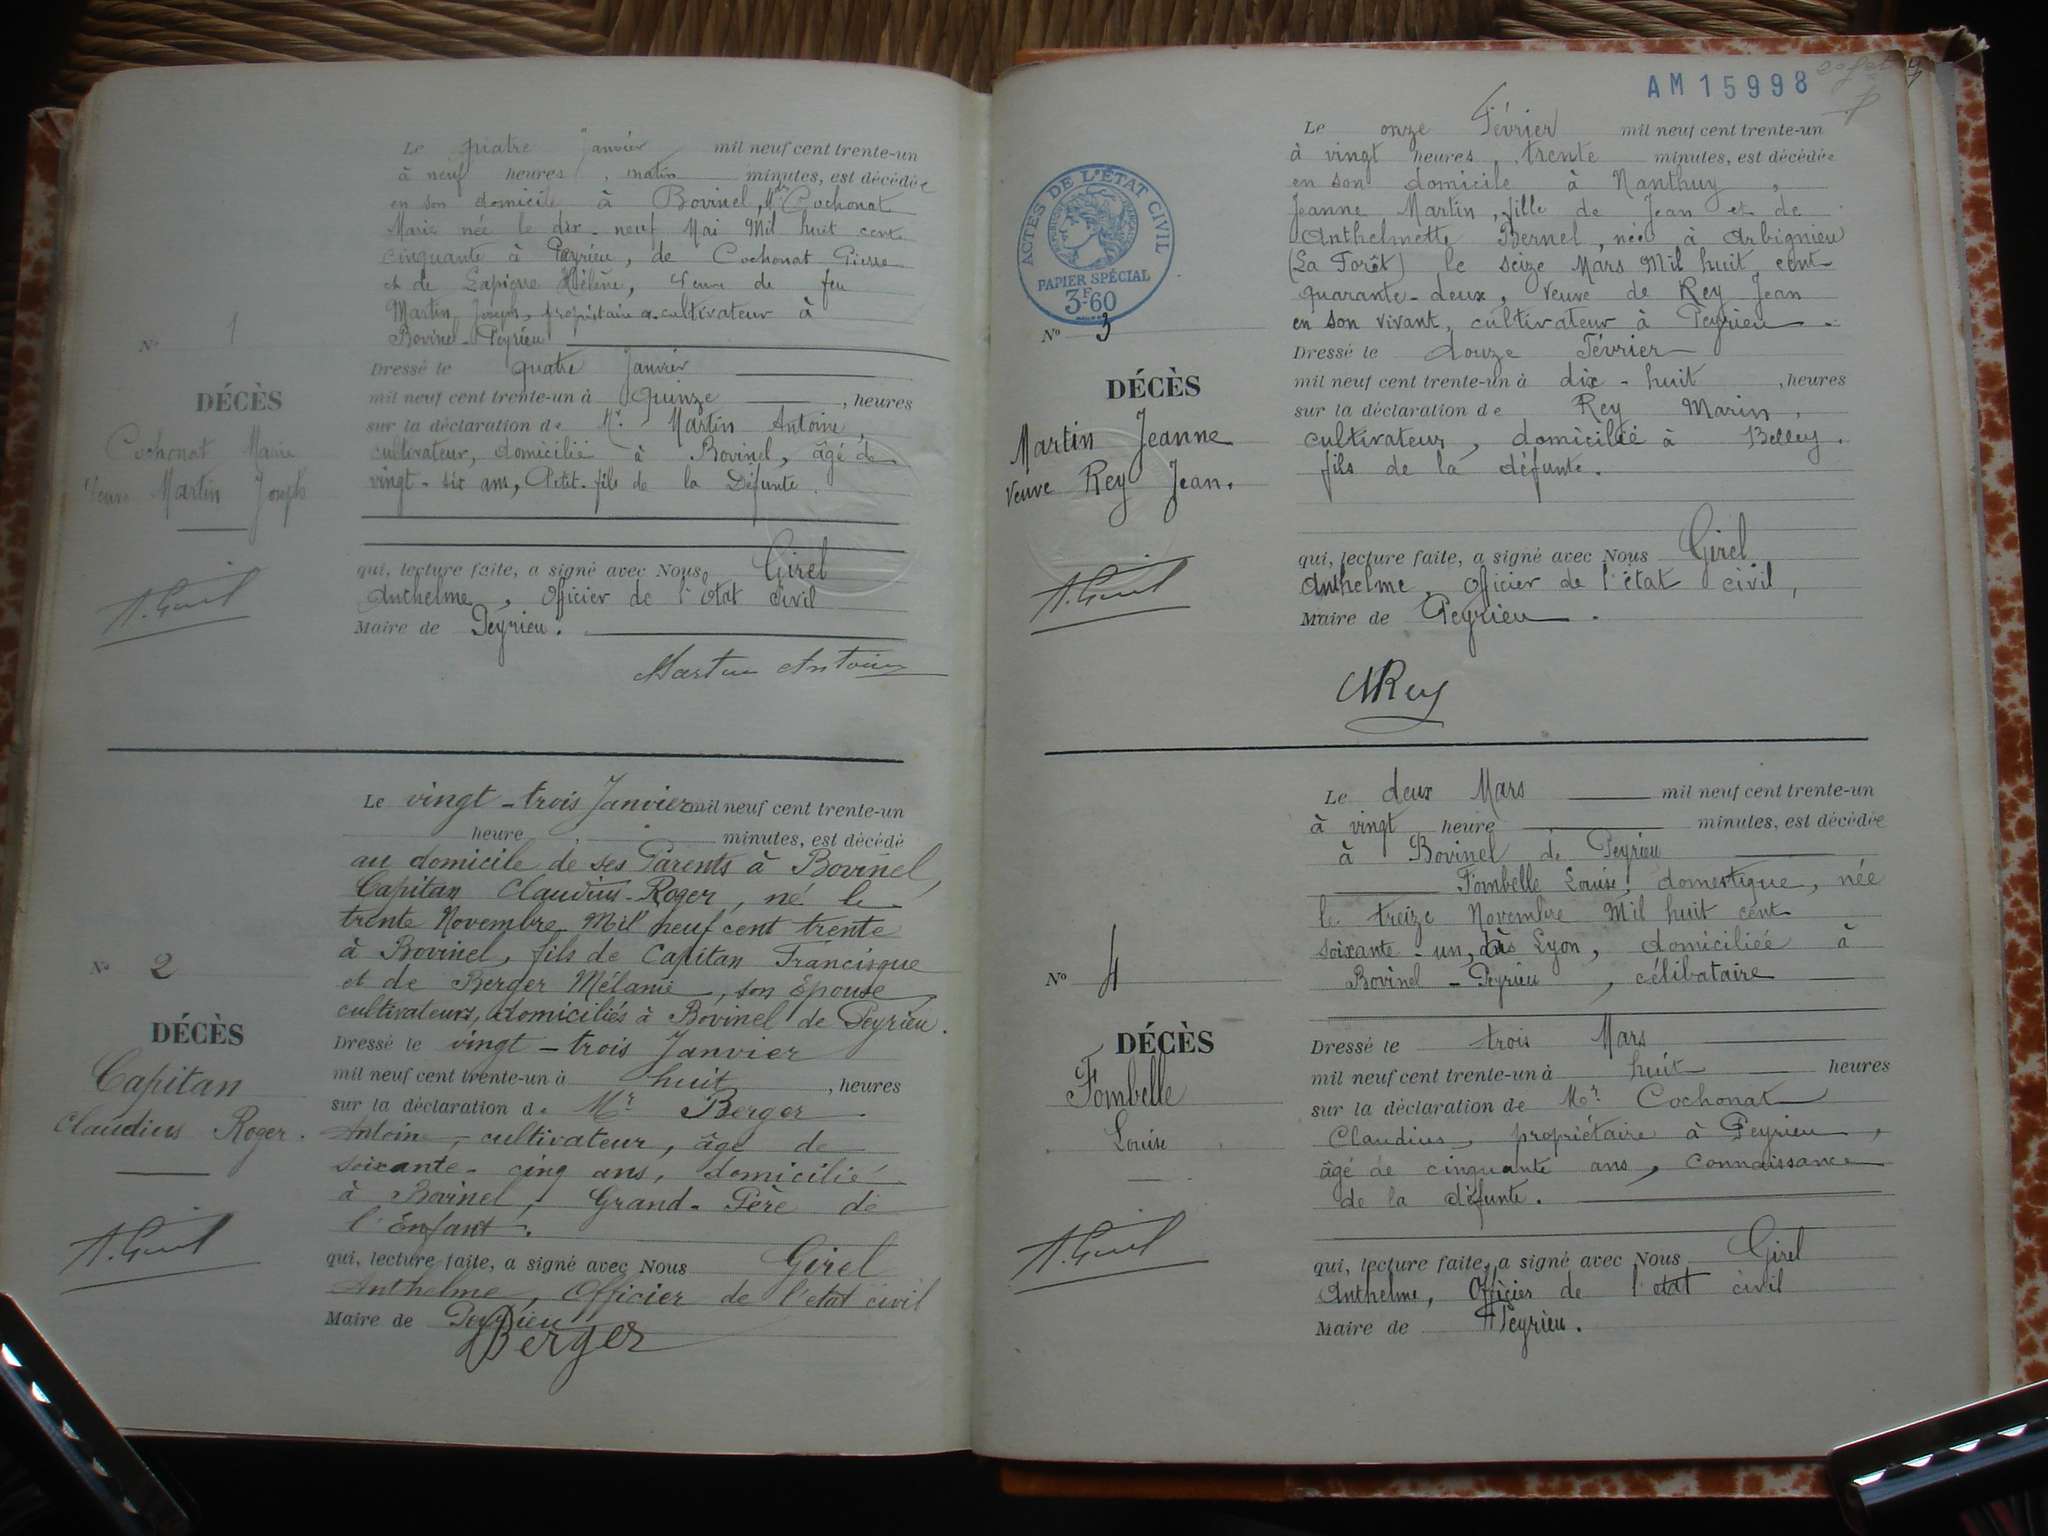 Le quatre Janvier mil neuf cent trente-un
à neuf heures, matin minutes, est décédée
en son domicile à Bovinel, Cochonat
Marie née le dix-neuf Mai Mil huit cent
cinquante à Peyrieu, de Cochonat Pierre
et de Lapierre Hélène, Veuve de feu
Martin Joseph, propriétaire cultivateur à
Bovinel-Peyrieu
N° 1
DÉCÈS
Cochonat Marie
Veuve Martin Joseph
Dressé le quatre Janvier
mil neuf cent trente-un à Quinze, heures
sur la déclaration de Mr Martin Antoine,
cultivateur, domicilié à Bovinel, âgé de
vingt-six ans, Petit-fils de la Défunte.
qui, lecture faite, a signé avec Nous, Girel
Anthelme, Officier de l'état civil
Maire de Peyrieu.
Martin Antoine
Le vingt-trois Janvier mil neuf cent trente-un
heure, minutes, est décédé
au domicile de ses Parents à Bovinel,
Capitan Claudius-Roger, né le
trente Novembre Mil neuf cent trente
à Bovinel, fils de Capitan Francisque
et de Berger Mélanie, son Épouse,
cultivateurs, domiciliés à Bovinel de Peyrieu.
N° 2
DÉCÈS
Capitan
Claudius Roger.
Dressé le vingt-trois Janvier
mil neuf cent trente-un à huit, heures
sur la déclaration de Mr Berger
Antoine, cultivateur, âgé de
soixante-cinq ans, domicilié
à Bovinel, Grand-Père de
l'Enfant.
qui, lecture faite, a signé avec Nous Girel
Anthelme, Officier de l'état civil
Maire de Peyrieu
Berger
AM 15998
Le onze Février mil neuf cent trente-un
à vingt heures, trente minutes, est décédée
en son domicile à Nanthuy,
Jeanne Martin, fille de Jean et de
Anthelmette Bernel, née à Arbignieu
(La Forêt) le seize Mars Mil huit cent
quarante-deux, Veuve de Rey Jean
en son vivant, cultivateur à Peyrieu.
ACTES DE L'ÉTAT CIVIL
PAPIER SPÉCIAL
3F60
N° 3
DÉCÈS
Martin Jeanne
Veuve Rey Jean.
Dressé le douze Février
mil neuf cent trente-un à dix-huit, heures
sur la déclaration de Rey Marin,
cultivateur, domicilié à Belley.
fils de la défunte.
qui, lecture faite, a signé avec Nous Girel
Anthelme, Officier de l'état civil,
Maire de Peyrieu.
MRey
Le deux Mars mil neuf cent trente-un
à vingt heure minutes, est décédée
à Bovinel de Peyrieu
Fombelle Louise, domestique, née
le treize Novembre Mil huit cent
soixante-un, à Lyon, domiciliée à
Bovinel-Peyrieu, célibataire
N° 4
DÉCÈS
Fombelle
Louise
Dressé le trois Mars
mil neuf cent trente-un à huit heures
sur la déclaration de Mr Cochonat
Claudius, propriétaire à Peyrieu,
âgé de cinquante ans, connaissance
de la défunte.
qui, lecture faite, a signé avec Nous Girel
Anthelme, Officier de l'état civil
Maire de Peyrieu.